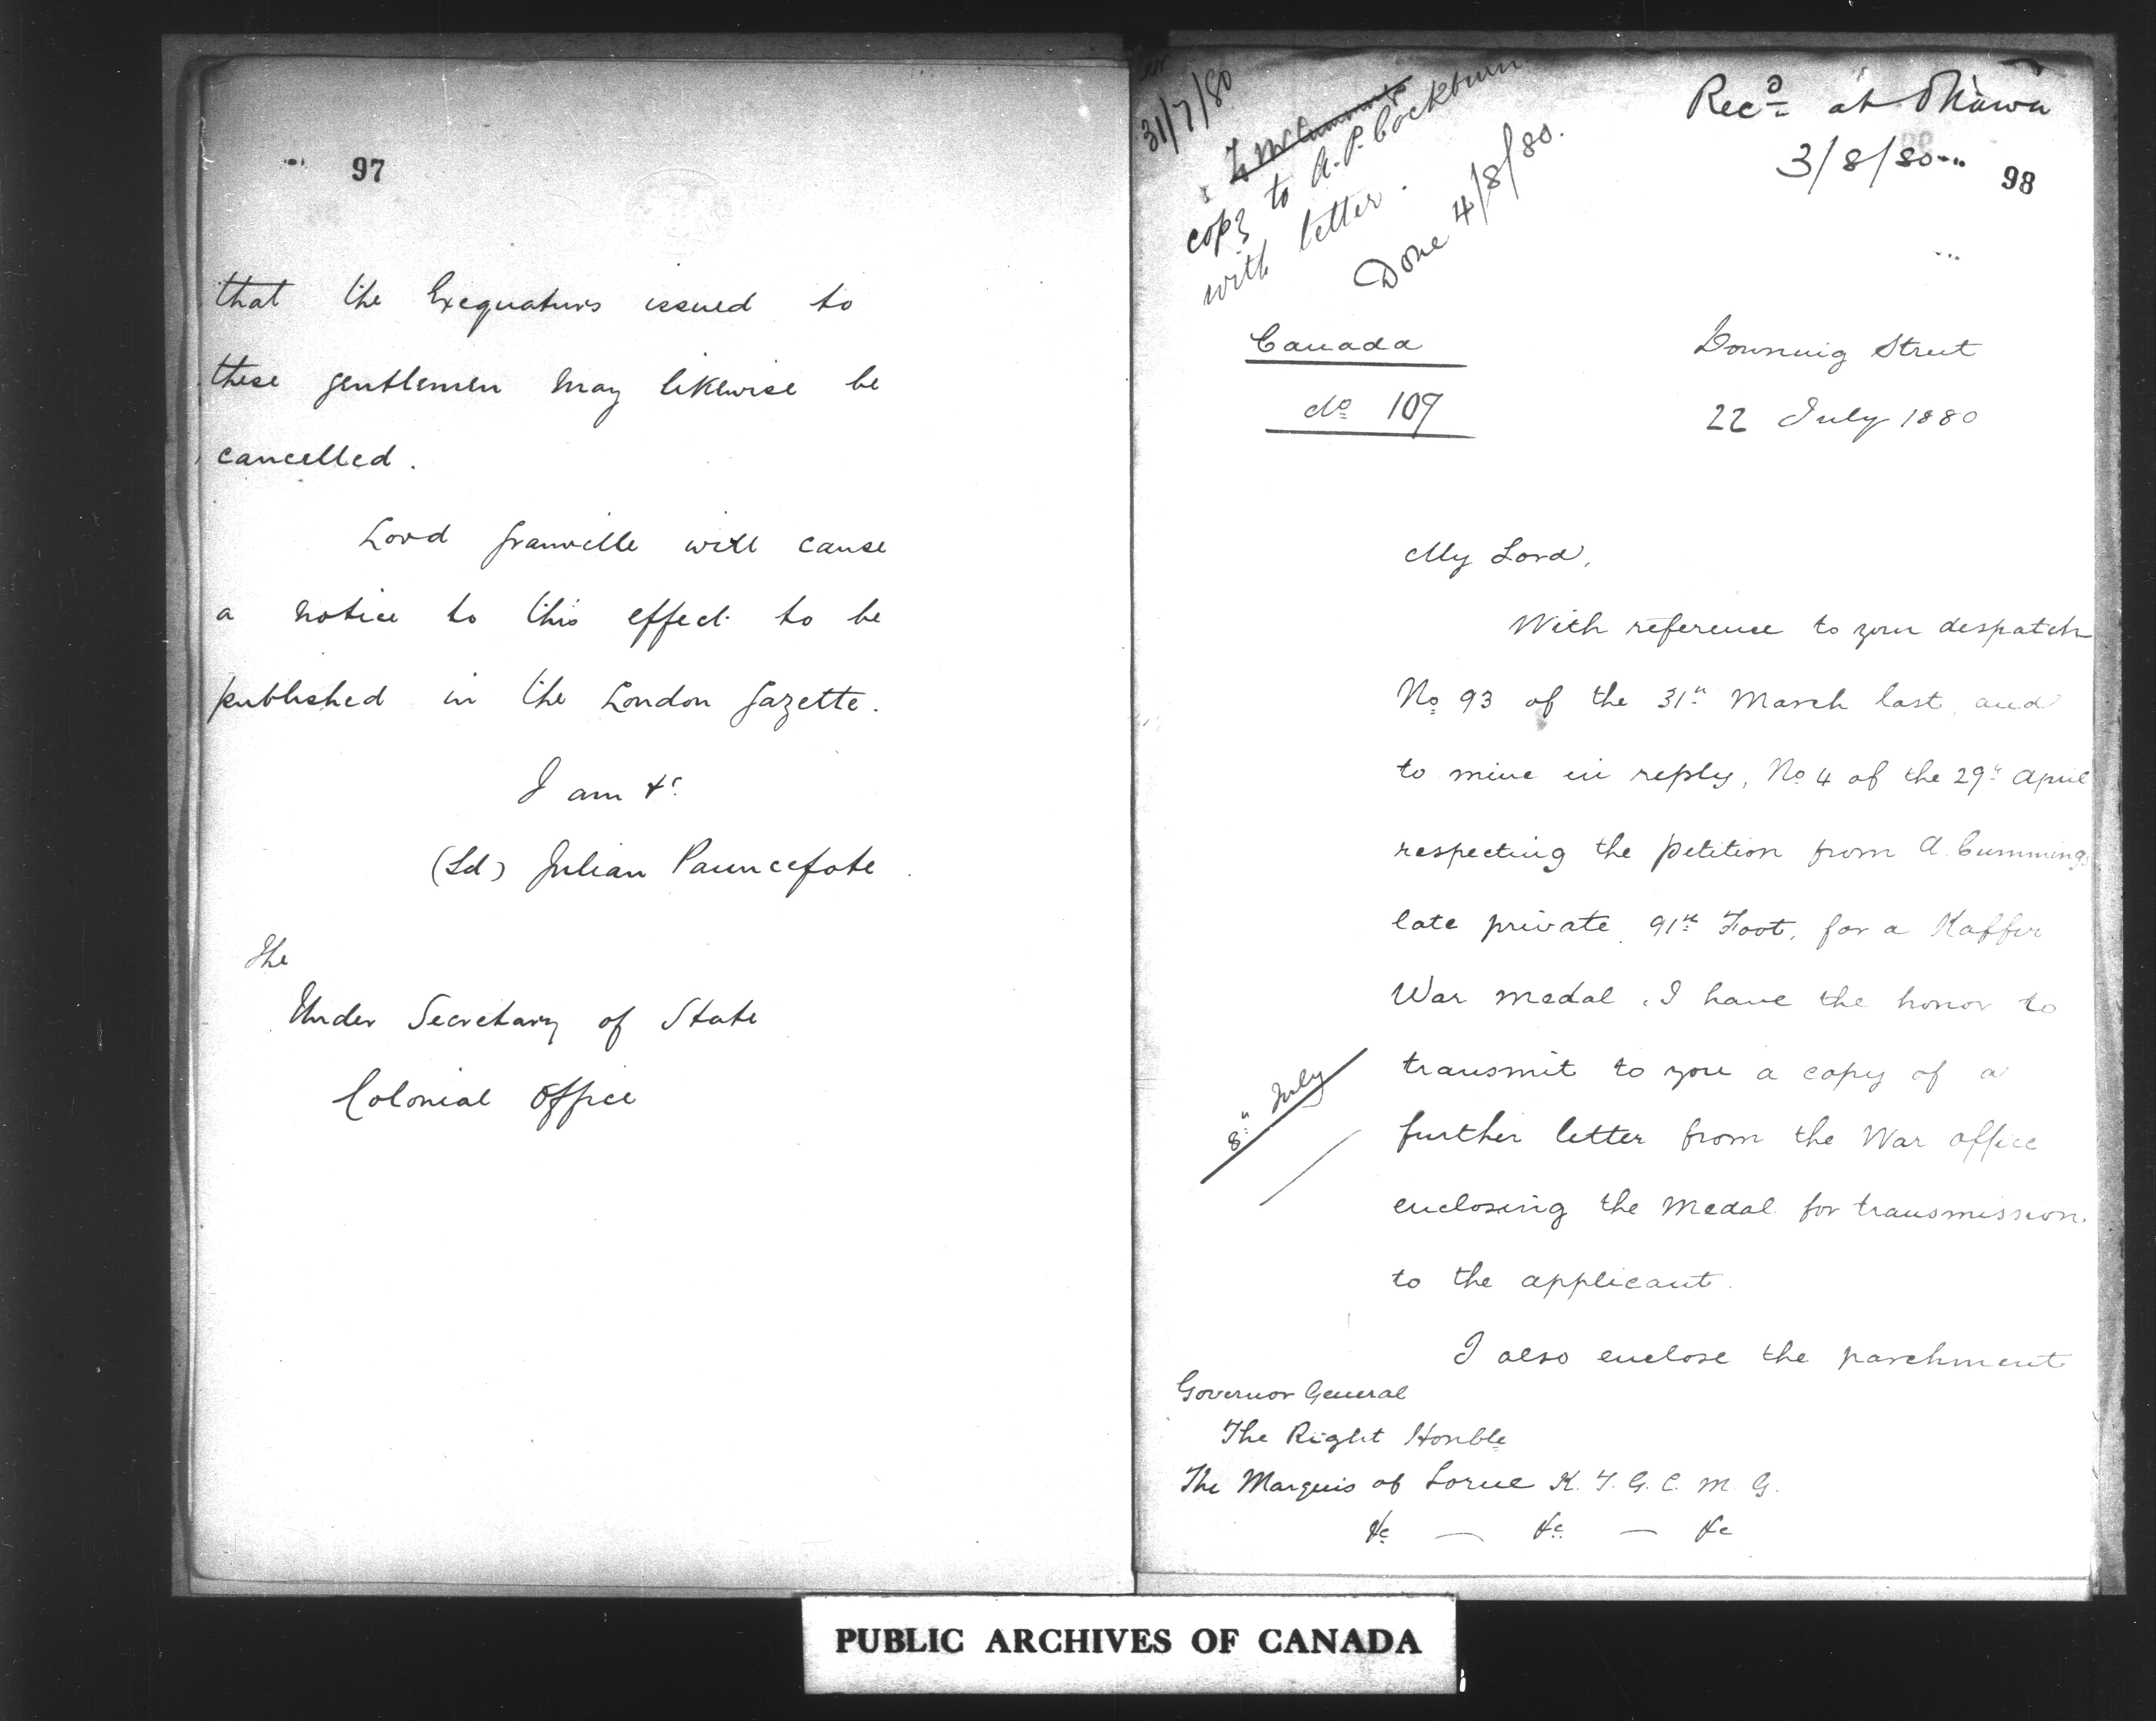 97
that the Exequaturs issued to
these gentlemen may likewise be
cancelled.
Lord Granville will cause
a notice to this effect to be
published in the London Gazette.
I am &c
(Sd) Julian Pauncefote
The
Under Secretary of State
Colonial Office
31/7/80
copy to A. P. Cockburn
with letter.
Done 4/8/80.
Recd at Ottawa
3/8/80
98
Canada
No 109
Downing Street
22 July 1880
My Lord,
With reference to your despatch
No 93 of the 31st March last, and
to mine in reply, No 4 of the 29th April
respecting the petition from A. Cumming
late private 91st Foot, for a Kaffir
War medal. I have the honor to
transmit to you a copy of a
8th July
further letter from the War office
enclosing the Medal for transmission
to the applicant.
I also enclose the parchment
Governor General
The Right Honble
The Marquis of Lorne K. T. G. C. M. G.
&c — &c — &c
PUBLIC ARCHIVES OF CANADA